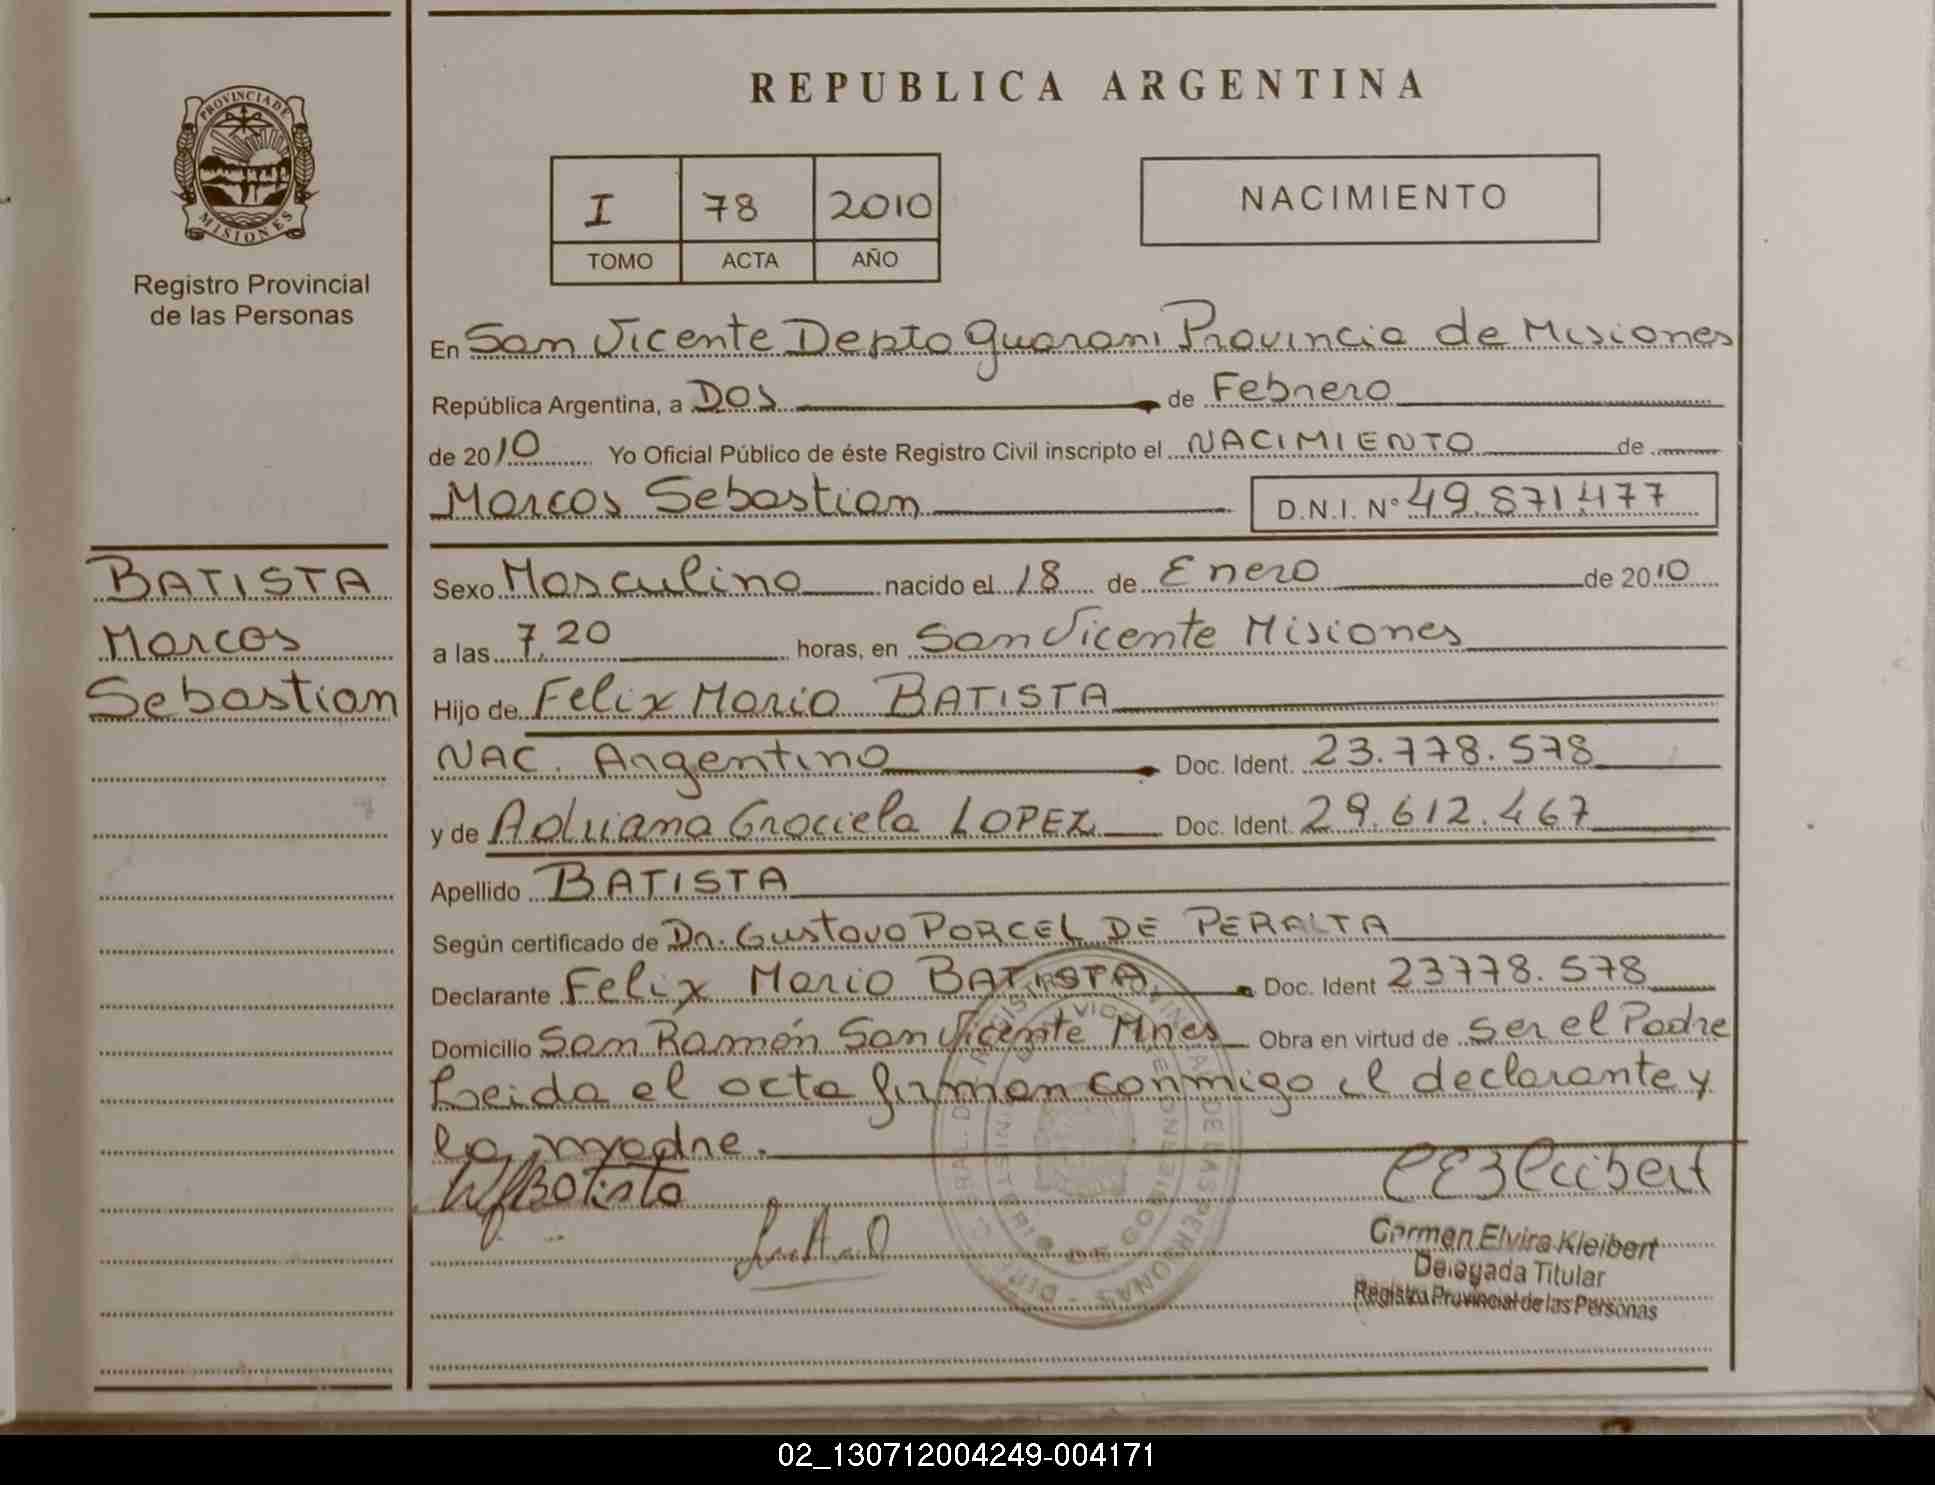 REPUBLICA ARGENTINA
PROVINCIA DE
MISIONES
Registro Provincial
de las Personas
I 78 2010
TOMO ACTA AÑO
NACIMIENTO
En San Vicente Depto Guarani Provincia de Misiones
República Argentina, a Dos de Febrero
de 2010 Yo Oficial Público de éste Registro Civil inscripto el NACIMIENTO de
Marcos Sebastian D.N.I. N° 49.871.477
BATISTA
Marcos
Sebastian
Sexo Masculino nacido el 18 de Enero de 2010
a las 7,20 horas, en San Vicente Misiones
Hijo de Felix Mario BATISTA
NAC. Argentino Doc. Ident. 23.778.578
y de Adriana Graciela LOPEZ Doc. Ident. 29.612.467
Apellido BATISTA
Según certificado de Dr. Gustavo PORCEL DE PERALTA
Declarante Felix Mario BATISTA Doc. Ident 23778.578
Domicilio San Ramón San Vicente Mnes Obra en virtud de Ser el Padre
Leida el acta firman conmigo el declarante y
la madre.
Batista
Carmen Elvira Kleibert
Delegada Titular
Registro Provincial de las Personas
02_130712004249-004171